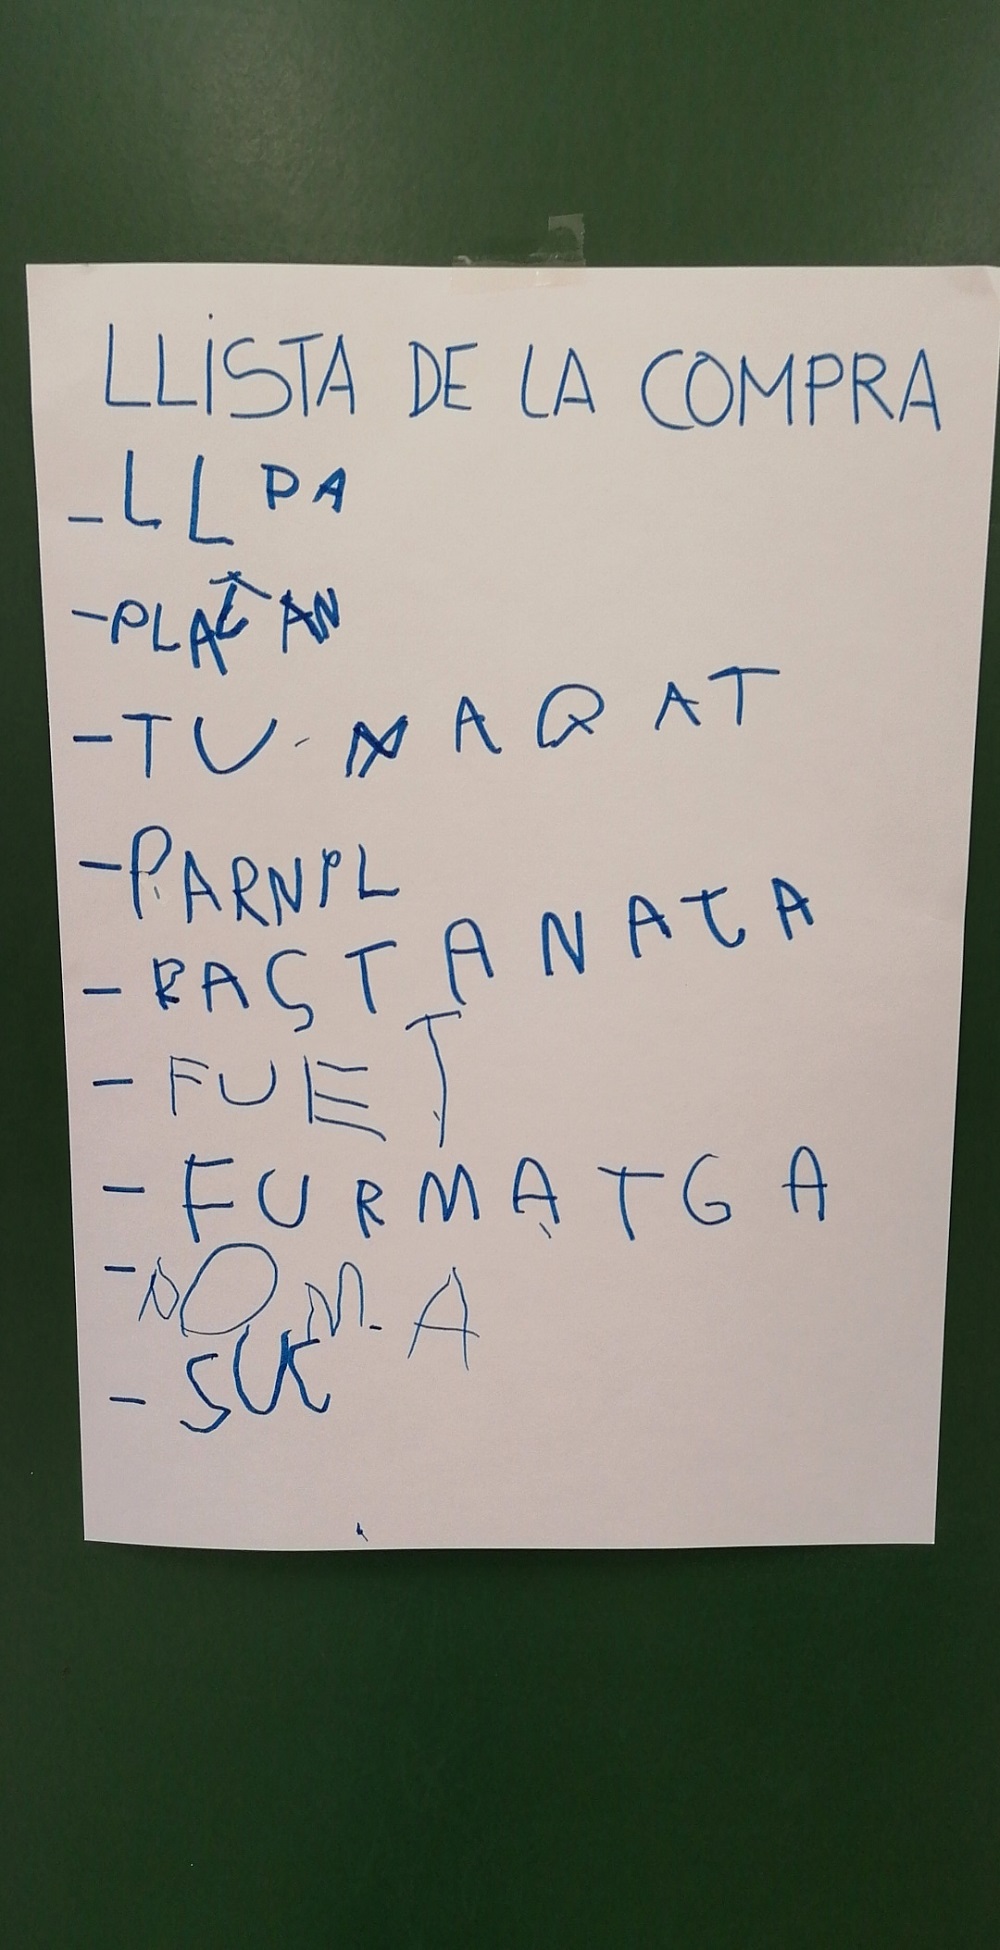 LLISTA DE LA COMPRA
- LLPA
- PLATAN
- TU MAQAT
- PARNIL
- PASTANATA
- FUET
- FURMATGA
- POMA
- SUK